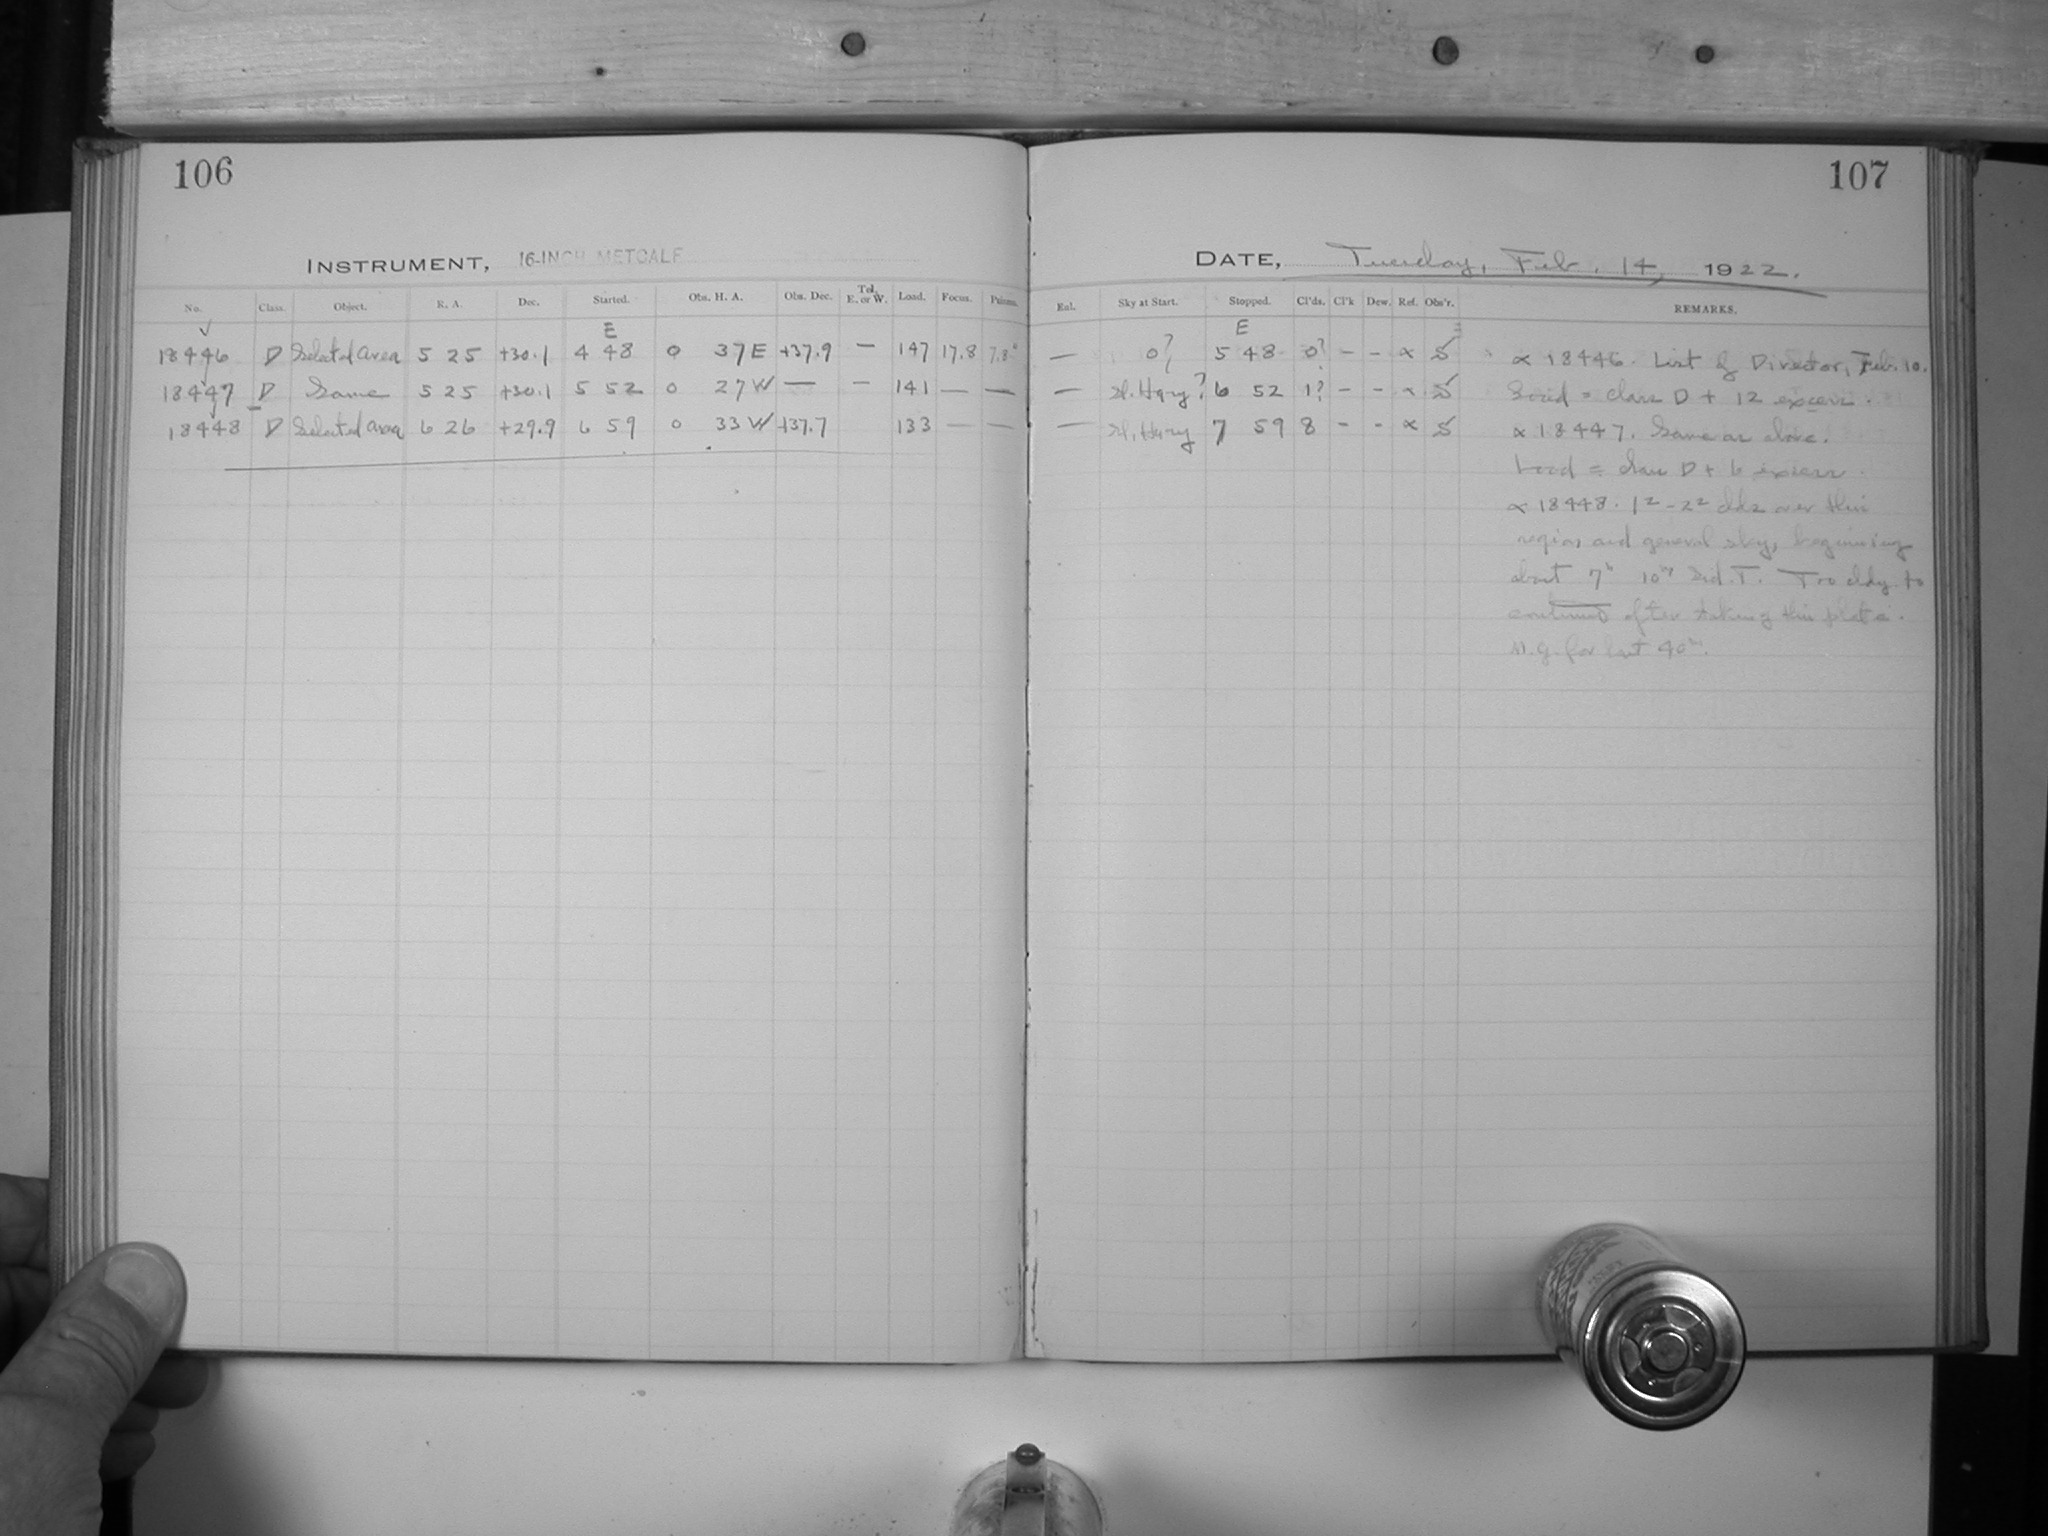 106
107
INSTRUMENT, 16-INCH METCALF
DATE, Tuesday, Feb. 14, 1922.
No. Class. Object. R. A. Dec. Started. Obs. H. A. Obs. Dec. Tel. E. or W. Load. Focus.
Sky at Start. Stopped. Cl'ds. Cl'k Dew. Ref. Obs'r. REMARKS.
E
E
18446 D Selected Area 5 25 +30.1 4 48 0 37 E +37.9 — 147 17.8
— 0? 5 48 0? - - x S
α 18446. List of Director, Feb. 10.
18447 D Same 5 25 +30.1 5 52 0 27 W — — 141 — —
— Sl. Hazy? 6 52 1? - - x S
Load = class D + 12 excess.
18448 D Selected Area 6 26 +29.9 6 59 0 33 W +37.7 133 — —
— Sl. Hazy 7 59 8 - - x S
α 18447. Same as above.
Load = class D + 6 excess.
α 18448. 1² - 2² clds over this
region and general sky, beginning
about 7ʰ 10ᵐ Sid. T. Too cldy. to
continue after taking this plate.
N.g. for last 40ᵐ.